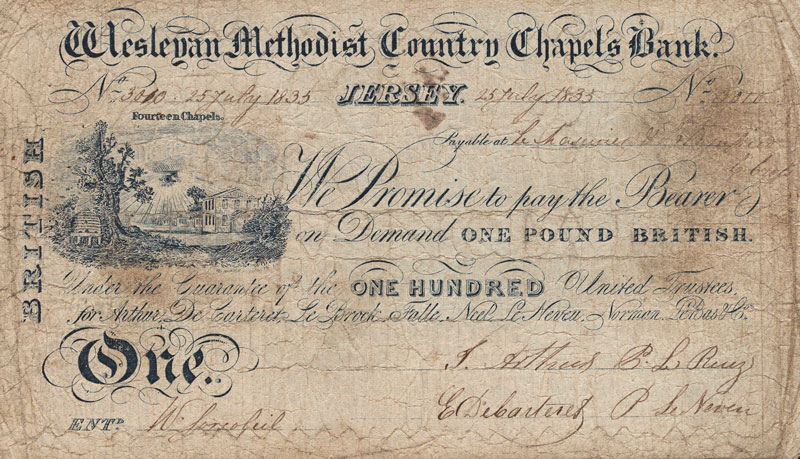 Wesleyan Methodist Country Chapels Bank.
No. 3010 25 July 1835 JERSEY. 25 July 1835 No. 3010
Fourteen Chapels.
Payable at
BRITISH
We Promise to pay the Bearer
on Demand ONE POUND BRITISH.
Under the Guarantee of the ONE HUNDRED United Trustees,
for Arthur, De Carteret, Le Brock, Falle, Neel, Le Neveu, Norman, Le Bas & Co.
One.
J. Arthur P. Le
E DeCarteret P Le Neveu
ENTD. W.